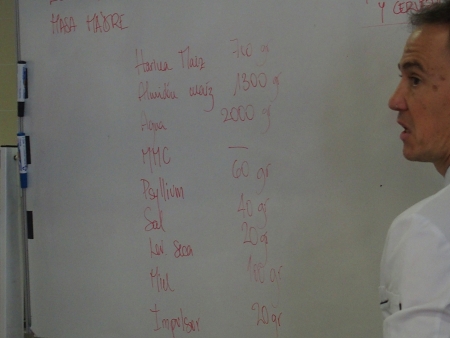 MASA MADRE
Y CERVE
Harina Maiz 700 gr
Almidón maiz 1300 gr
Agua 2000 gr
MMC —
Psyllium 60 gr
Sal 40 gr
Lev Seca 20 gr
Miel 100 gr
Impulsor 20 gr